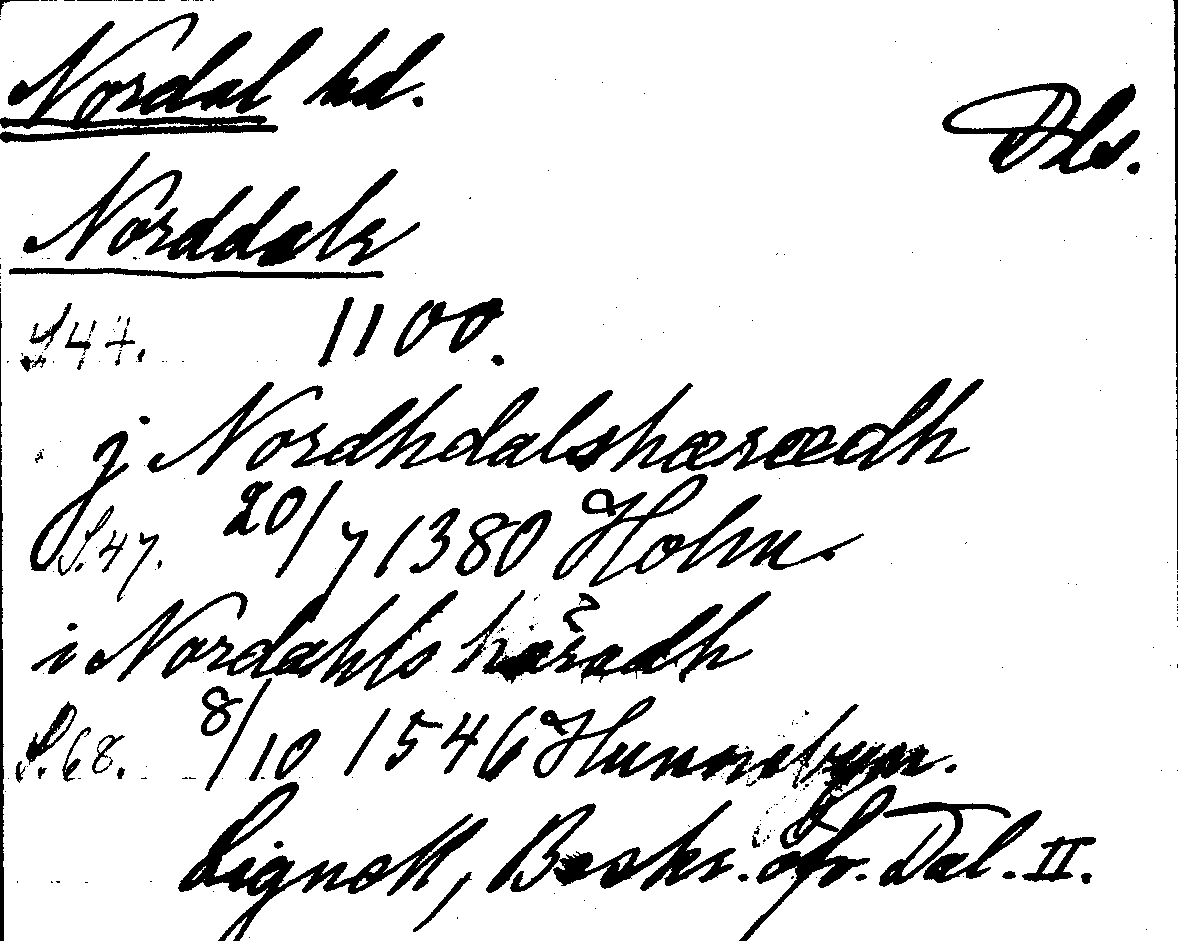 Nordal hd.
Dls.
Norddalr
S. 47. 1100.
j Nordhdalshæræedh
S. 47. 20/7 1380 Holm.
i Nordahls häradh
S. 68. 8/10 1546 Hunnebyn.
Lignell, Beskr. öfv. Dal. II.